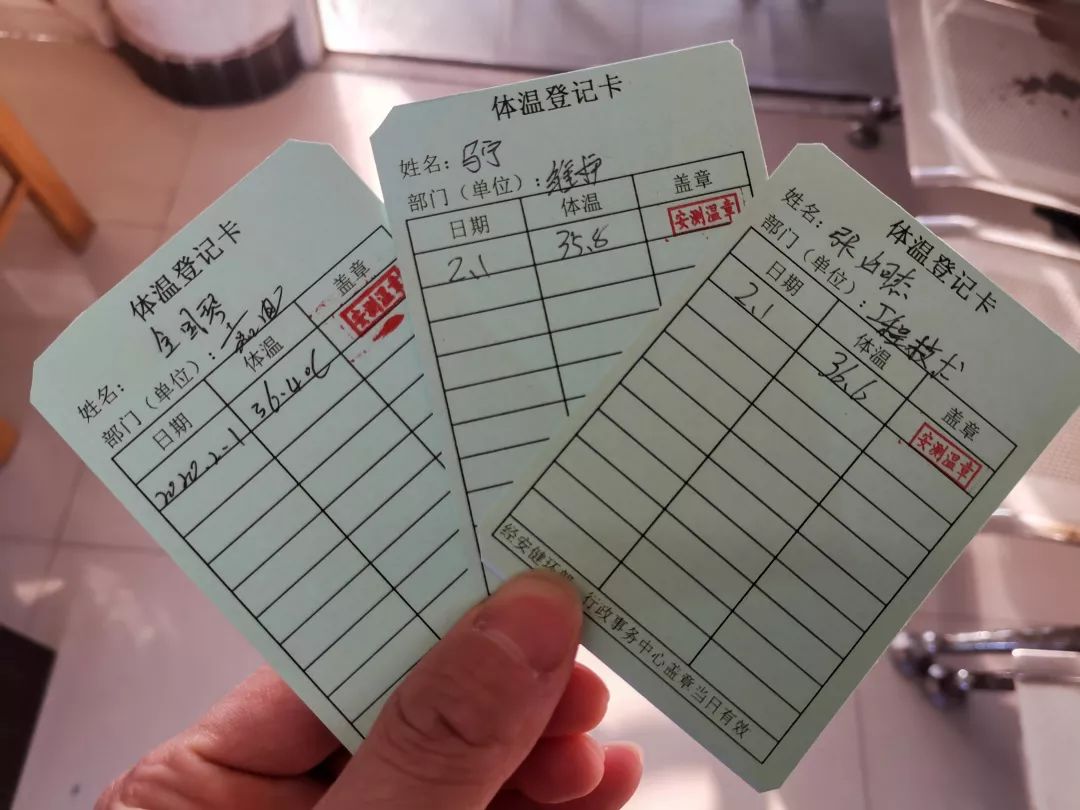 体温登记卡
姓名：
部门（单位）：
日期 体温 盖章
2020.2.1 36.4℃ 安测温章
体温登记卡
姓名：马宁
部门（单位）：维护
日期 体温 盖章
2.1 35.8 安测温章
体温登记卡
姓名：张
部门（单位）：工程技术
日期 体温 盖章
2.1 36.6 安测温章
经安健环 行政事务中心盖章当日有效